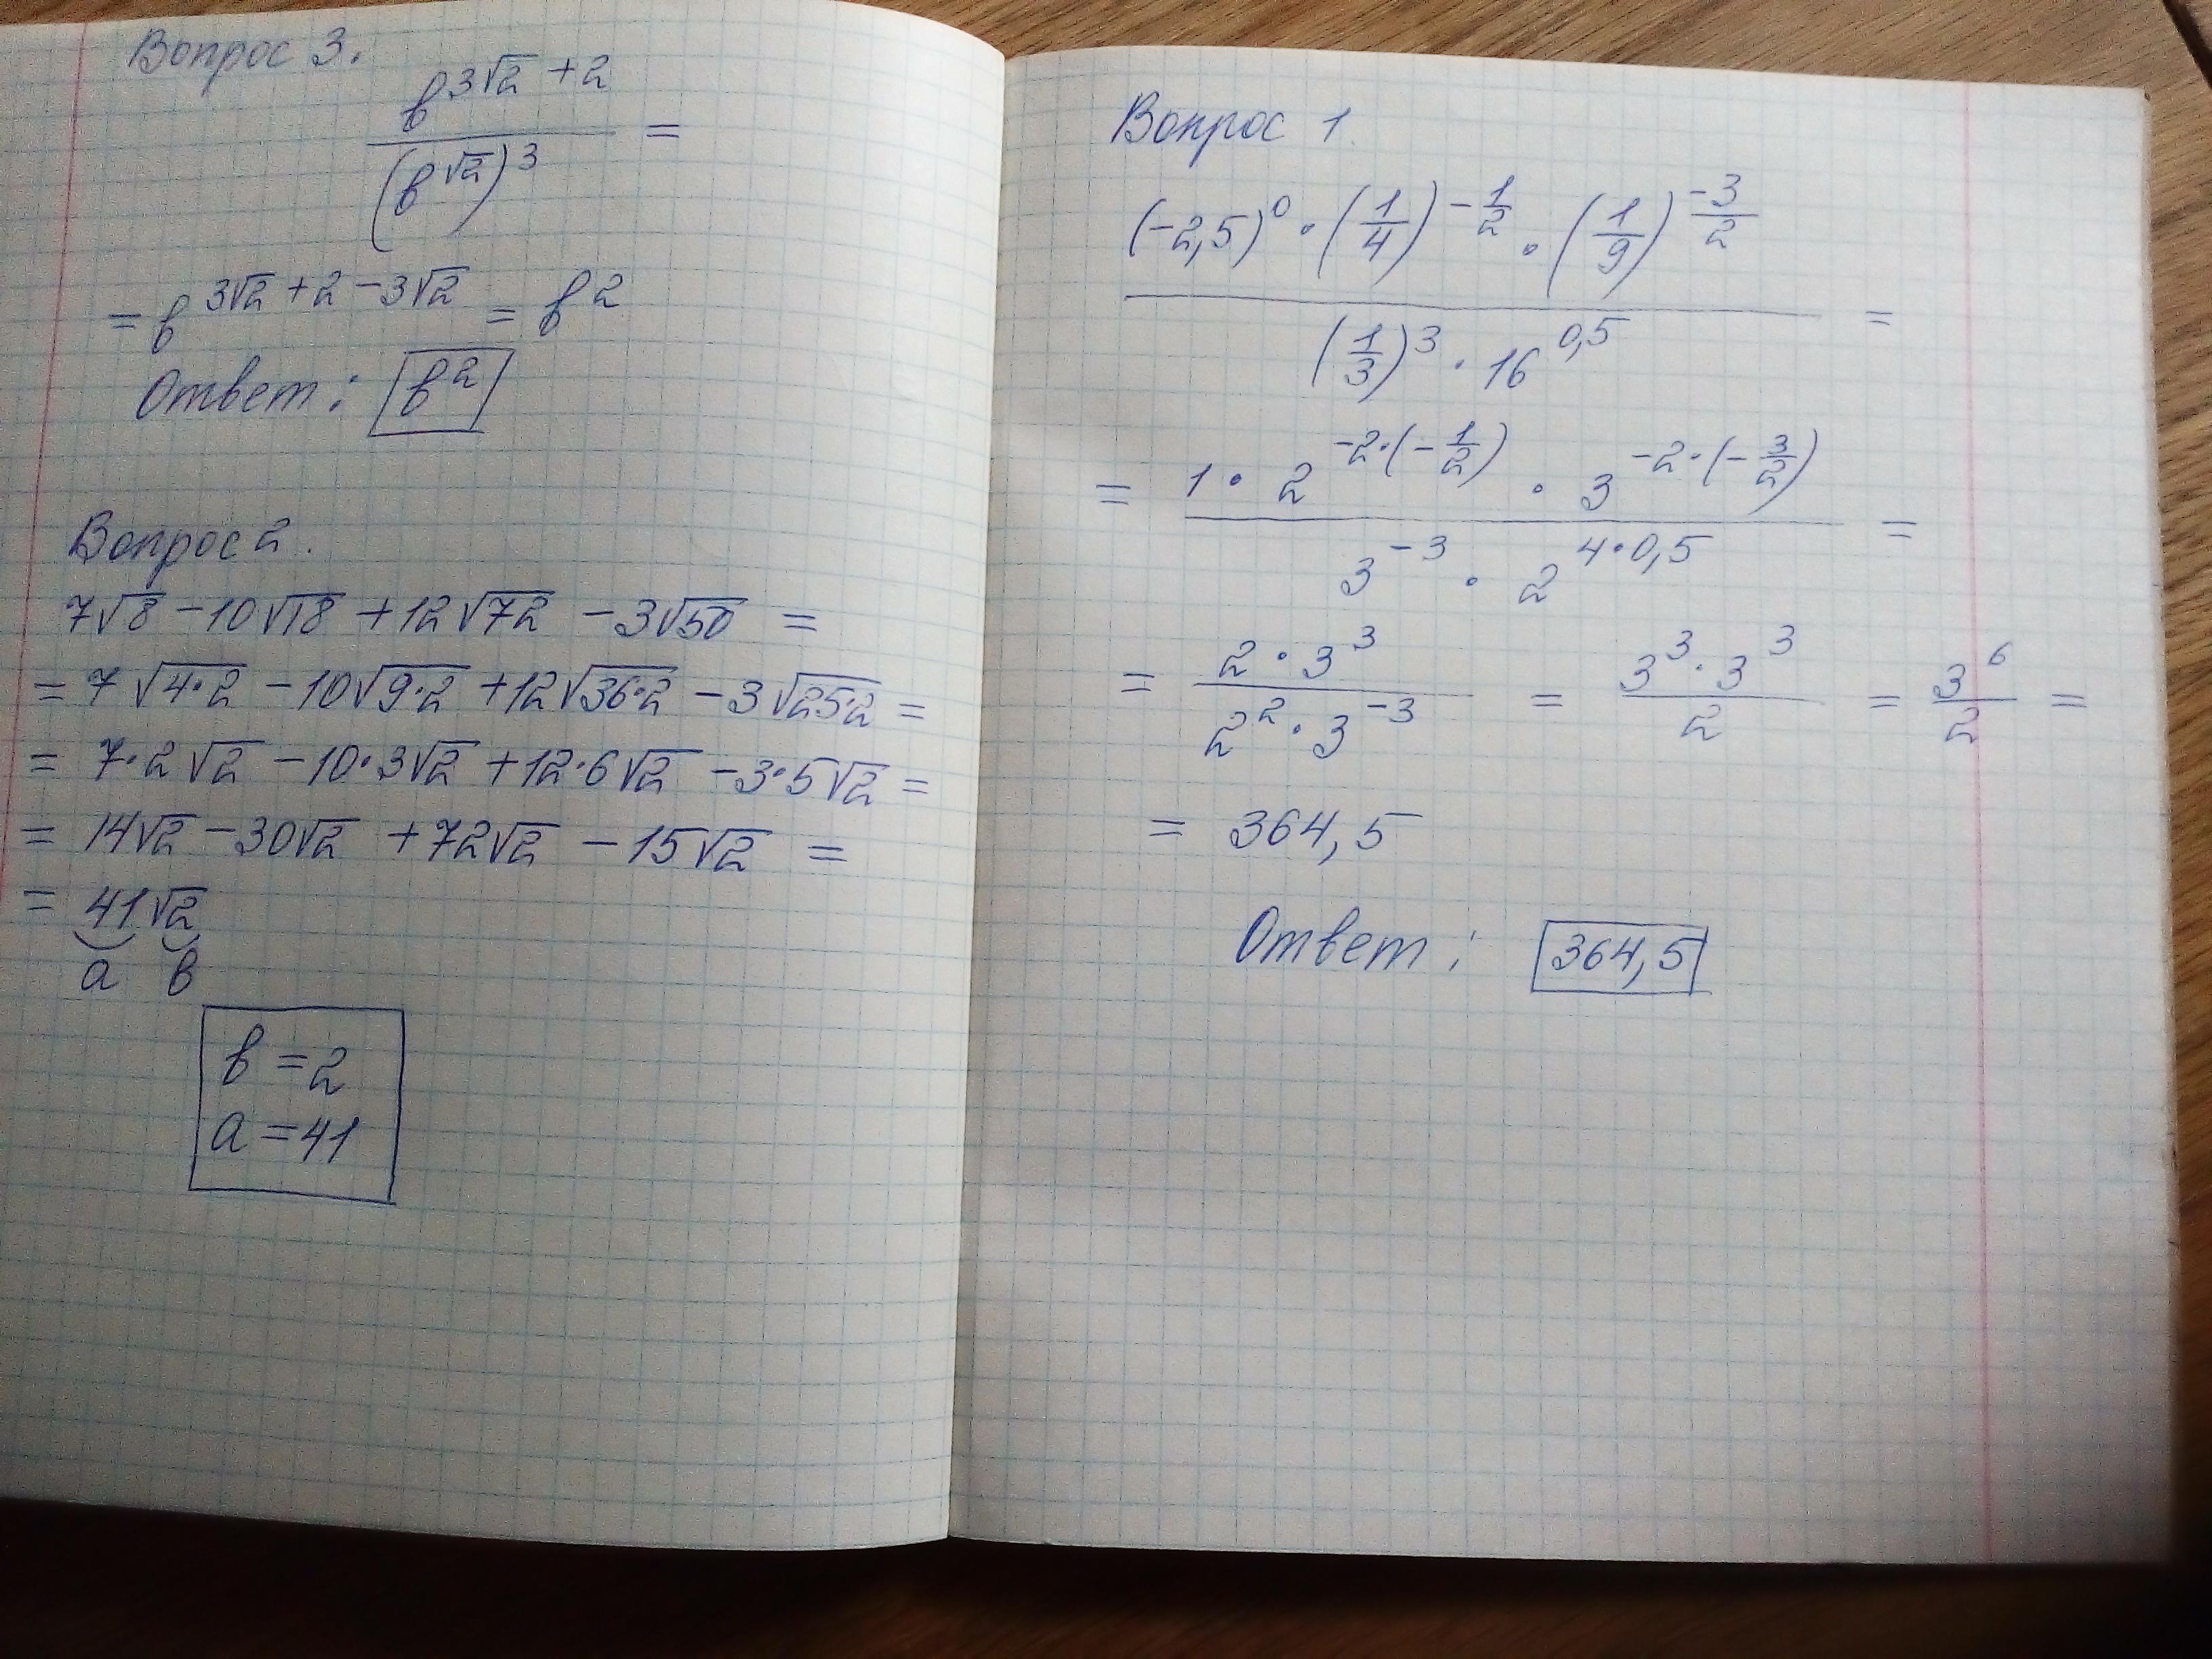 Вопрос 3.
b^(3√2 + 2) / (b^√2)^3 =
= b^(3√2 + 2 - 3√2) = b^2
Ответ: b^2
Вопрос 2.
7√8 - 10√18 + 12√72 - 3√50 =
= 7√4·2 - 10√9·2 + 12√36·2 - 3√25·2 =
= 7·2√2 - 10·3√2 + 12·6√2 - 3·5√2 =
= 14√2 - 30√2 + 72√2 - 15√2 =
= 41√2
a в
b = 2
a = 41
Вопрос 1
(-2,5)^0 · (1/4)^(-1/2) · (1/9)^(-3/2) / (1/3)^3 · 16^0,5 =
= 1 · 2^(-2·(-1/2)) · 3^(-2·(-3/2)) / 3^(-3) · 2^(4·0,5) =
= 2·3^3 / 2^2·3^(-3) = 3^3·3^3 / 2 = 3^6 / 2 =
= 364,5
Ответ: 364,5